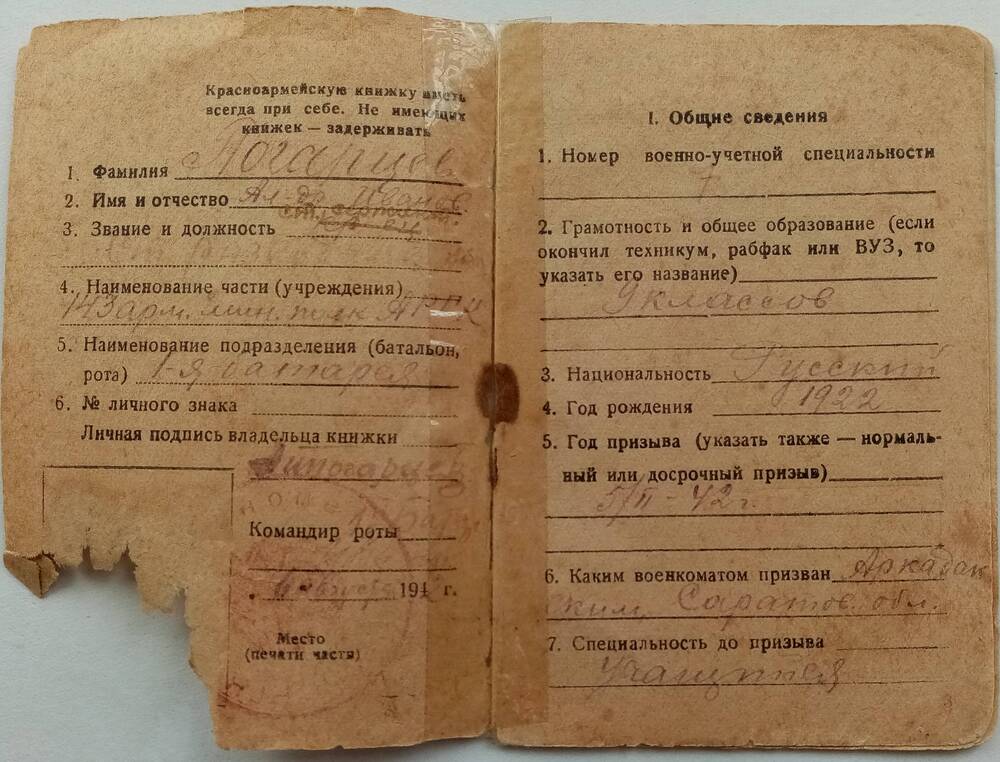 Красноармейскую книжку иметь
всегда при себе. Не имеющих
книжек — задерживать
1. Фамилия Погарцев
2. Имя и отчество Ал-др Иванов.
3. Звание и должность ст. сержант
4. Наименование части (учреждения)
143 арм. мин. полк АРГК
5. Наименование подразделения (батальон,
рота) 1-я батарея
6. № личного знака
Личная подпись владельца книжки
Командир роты
194 г.
Место
(печати части)
I. Общие сведения
1. Номер военно-учетной специальности
7
2. Грамотность и общее образование (если
окончил техникум, рабфак или ВУЗ, то
указать его название)
9 классов
3. Национальность Русский
4. Год рождения 1922
5. Год призыва (указать также — нормаль-
ный или досрочный призыв)
5/II - 42 г.
6. Каким военкоматом призван Аркадак
ским, Саратов. обл.
7. Специальность до призыва
Учащийся